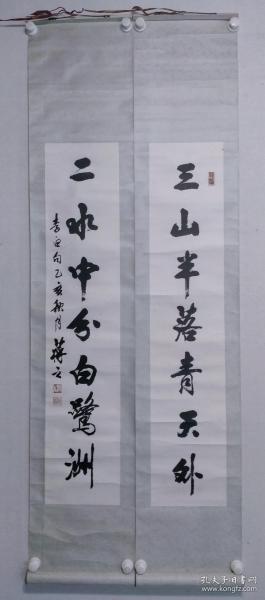 三山半落青天外
二水中分白鹭洲
李白句乙亥秋月
孔夫子旧书网